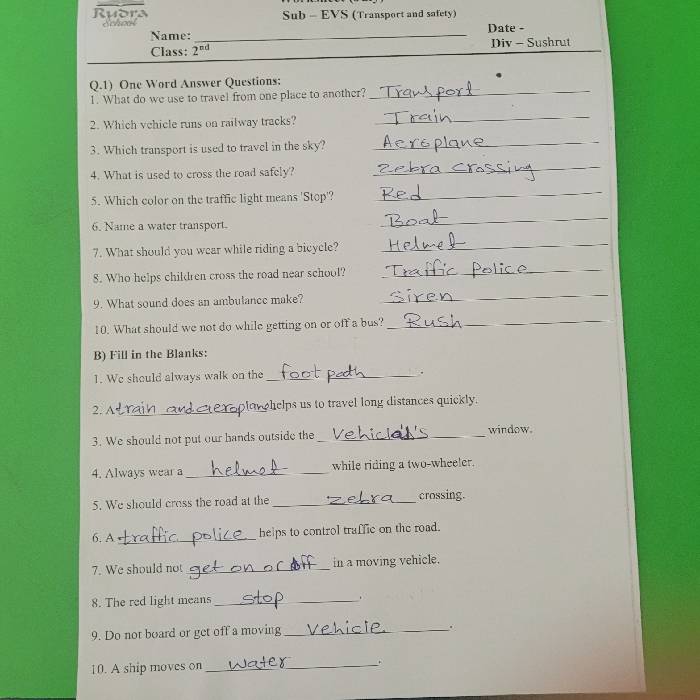 Rudra
School
Sub – EVS (Transport and safety)
Name:
Date -
Class: 2nd
Div – Sushrut
Q.1) One Word Answer Questions:
1. What do we use to travel from one place to another? Transport
2. Which vehicle runs on railway tracks? Train
3. Which transport is used to travel in the sky? Aeroplane
4. What is used to cross the road safely? Zebra crossing
5. Which color on the traffic light means 'Stop'? Red
6. Name a water transport. Boat
7. What should you wear while riding a bicycle? Helmet
8. Who helps children cross the road near school? Traffic Police
9. What sound does an ambulance make? Siren
10. What should we not do while getting on or off a bus? Rush
B) Fill in the Blanks:
1. We should always walk on the foot path.
2. A train and aeroplane helps us to travel long distances quickly.
3. We should not put our hands outside the Vehicle's window.
4. Always wear a helmet while riding a two-wheeler.
5. We should cross the road at the zebra crossing.
6. A traffic police helps to control traffic on the road.
7. We should not get on or off in a moving vehicle.
8. The red light means stop.
9. Do not board or get off a moving Vehicle.
10. A ship moves on Water.